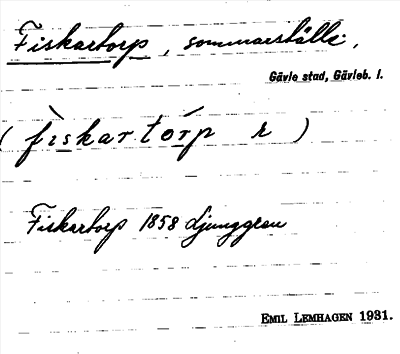 Fiskartorp, sommarställe,
Gävle stad, Gävleb. l.
(fìskartórp r)
Fiskartorp 1858 Ljunggren
EMIL LEMHAGEN 1931.